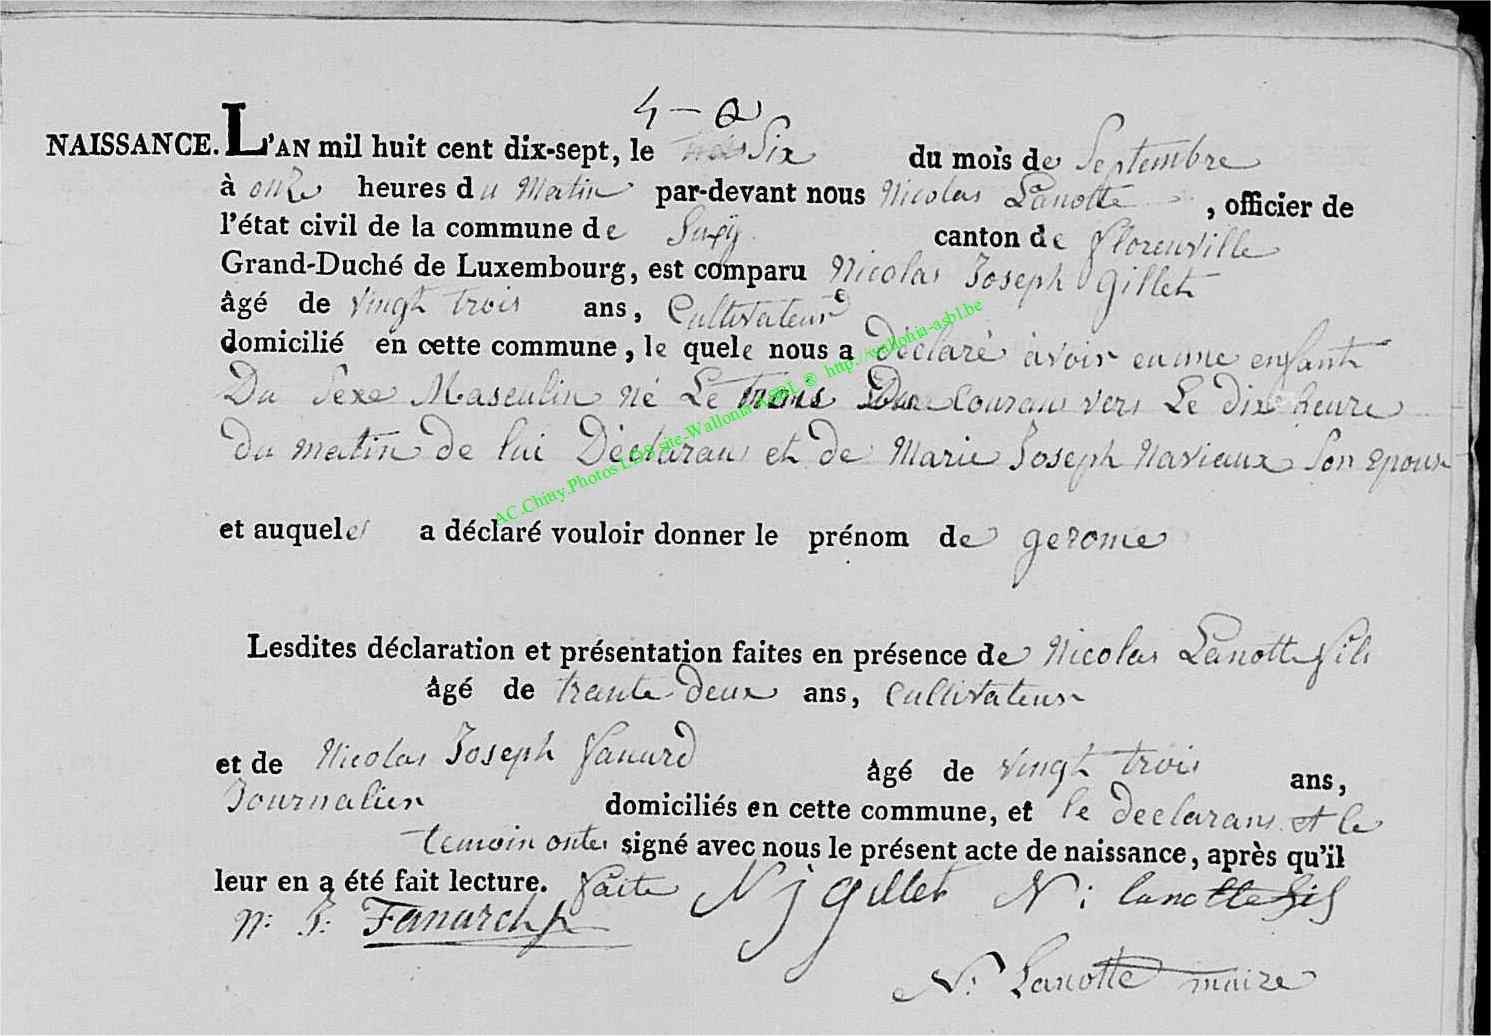 4 - a
NAISSANCE. L'AN mil huit cent dix-sept, le Six du mois de Septembre
à onze heures du Matin par-devant nous Nicolas Lanotte, officier de
l'état civil de la commune de Suxÿ canton de florenville
Grand-Duché de Luxembourg, est comparu Nicolas Joseph gillet
âgé de vingt trois ans, Cultivateur
domicilié en cette commune, le quele nous a déclaré avoir eu une enfant
Du Sexe Masculin né Le trois Du Couran vers Le dix heure
du matin de lui Déclaran et de Marie Joseph Naviaux Son epouse
et auquel a déclaré vouloir donner le prénom de gerome
Lesdites déclaration et présentation faites en présence de Nicolas Lanotte fils
âgé de trante deux ans, Cultivateur
et de Nicolas Joseph fanard âgé de vingt trois ans,
Journalier domiciliés en cette commune, et le declarans et le
temoin onte signé avec nous le présent acte de naissance, après qu'il
leur en a été fait lecture. faite N j gillet N: lanotte fils
N: J: Fanard
N: Lanotte maire
AC.Chiny.Photos LDS site-Wallonia ASBL © http://wallonia-asbl.be